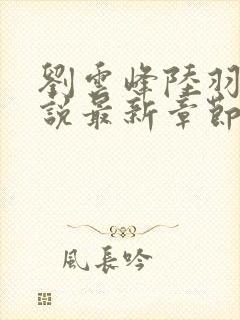 劉雲峰陸羽
說最新章節
風長吟